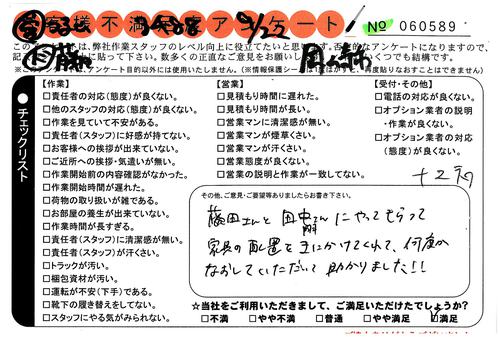 お客様不満足アンケート 9/23
№ 060589
このアンケートは、弊社作業スタッフのレベル向上に役立てたいと思います。否定的なアンケートになりますので、
チェックリスト
【作業】
□責任者の対応(態度)が良くない。
□他のスタッフの対応(態度)が良くない。
□作業を見ていて不安がある。
□責任者(スタッフ)に好感が持てない。
□お客様への挨拶が出来ていない。
□ご近所への挨拶・気遣いが無い。
□作業開始前の内容確認がなかった。
□作業開始時間が遅れた。
□荷物の取り扱いが雑である。
□お部屋の養生が出来ていない。
□作業時間が長すぎる。
□責任者(スタッフ)に清潔感が無い。
□責任者(スタッフ)が汗さい。
□トラックが汚い。
□梱包資材が汚い。
□運転が不安(下手)である。
□靴下の履き替えをしてない。
□スタッフにやる気がみられない。
【営業】
□見積もり時間に遅れた。
□見積もり時間が長い。
□営業マンに清潔感が無い。
□営業マンが煙草くさい。
□営業マンが汗くさい。
□営業態度が良くない。
□営業の説明と作業が一致してない。
【受付・その他】
□電話の対応が良くない。
□オプション業者の説明
・作業が良くない。
□オプション業者の対応
(態度)が良くない。
その他、ご意見・ご要望等ありましたらお書き下さい。
藤田さんと田中さんにやってもらって
家具の配置を気にかけてくれて、何度か
なおしていただいて助かりました!!
☆当社をご利用いただきまして、ご満足いただけたでしょうか?
□不満 □やや不満 □普通 □やや満足 ☑満足